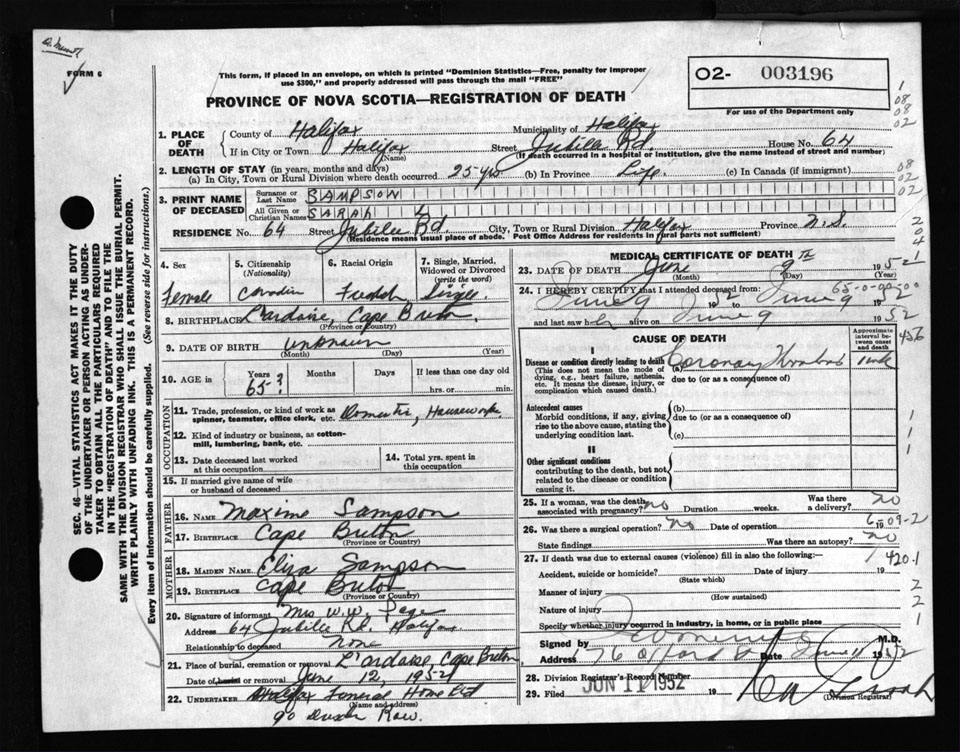 FORM 6
This form, if placed in an envelope, on which is printed "Dominion Statistics—Free, penalty for improper
use $300," and properly addressed will pass through the mail "FREE"
PROVINCE OF NOVA SCOTIA—REGISTRATION OF DEATH
02- 003196
For use of the Department only
1. PLACE OF DEATH
County of Halifax Municipality of Halifax
If in City or Town Halifax Street Jubilee Rd. House No. 64
(Name) (If death occurred in a hospital or institution, give the name instead of street and number)
2. LENGTH OF STAY (in years, months and days)
(a) In City, Town or Rural Division where death occurred 25 yrs (b) In Province Life. (c) In Canada (if immigrant)
3. PRINT NAME OF DECEASED
Surname or Last Name SAMPSON
All Given or Christian Names SARAH
RESIDENCE No. 64 Street Jubilee Rd. City, Town or Rural Division Halifax Province N.S.
(Residence means usual place of abode. Post Office Address for residents in rural parts not sufficient)
4. Sex
Female
5. Citizenship
(Nationality)
6. Racial Origin
French
7. Single, Married,
Widowed or Divorced
(write the word)
Single.
8. BIRTHPLACE L'ardoise, Cape Breton.
(Province or Country)
9. DATE OF BIRTH unknown
(Month) (Day) (Year)
10. AGE in
Years Months Days If less than one day
65? hrs. or min.
OCCUPATION
11. Trade, profession, or kind of work as
spinner, teamster, office clerk, etc. Domestic, Housework.
12. Kind of industry or business, as cotton-
mill, lumbering, bank, etc.
13. Date deceased last worked
at this occupation
14. Total yrs. spent in
this occupation
15. If married give name of wife
or husband of deceased
FATHER
16. NAME Maxime Sampson
17. BIRTHPLACE Cape Breton
(Province or Country)
MOTHER
18. MAIDEN NAME Eliza Sampson
19. BIRTHPLACE Cape Breton
(Province or Country)
20. Signature of informant Mrs W.W. Page
Address 64 Jubilee Rd. Halifax
Relationship to deceased None
21. Place of burial, cremation or removal L'ardoise, Cape Breton
Date of burial or removal June 12, 1952
22. UNDERTAKER Halifax Funeral Home Ltd
(Name and address)
90 Row.
MEDICAL CERTIFICATE OF DEATH
23. DATE OF DEATH June 9 1952
(Month) (Day) (Year)
24. I HEREBY CERTIFY that I attended deceased from:
June 9 1952 June 9 1952
and last saw h alive on June 9 1952
CAUSE OF DEATH
Approximate
interval be-
tween onset
and death
I
Disease or condition directly leading to death (a) Coronary
(This does not mean the mode of
dying, e.g., heart failure, asthenia,
etc. It means the disease, injury, or
complication which caused death.)
due to (or as a consequence of)
Antecedent causes (b)
Morbid conditions, if any, giving
rise to the above cause, stating the
underlying condition last.
due to (or as a consequence of)
(c)
II
Other significant conditions
contributing to the death, but not
related to the disease or condition
causing it.
25. If a woman, was the death
associated with pregnancy? no Duration weeks. Was there
a delivery? no
26. Was there a surgical operation? no Date of operation 19
State findings Was there an autopsy? no
27. If death was due to external causes (violence) fill in also the following:—
Accident, suicide or homicide? Date of injury 19
(State which)
Manner of injury
(How sustained)
Nature of injury
Specify whether injury occurred in industry, in home, or in public place
Signed by M.D.
Address 76 Oxford Date
28. Division Registrar's Record Number
29. Filed JUN 11 1952 19
(Division Registrar)
420.1
456
SEC. 46—VITAL STATISTICS ACT MAKES IT THE DUTY
OF THE UNDERTAKER OR PERSON ACTING AS UNDER-
TAKER TO OBTAIN ALL THE PARTICULARS REQUIRED
IN THE "REGISTRATION OF DEATH" AND TO FILE THE
SAME WITH THE DIVISION REGISTRAR WHO SHALL ISSUE THE BURIAL PERMIT.
WRITE PLAINLY WITH UNFADING INK. THIS IS A PERMANENT RECORD.
Every item of Information should be carefully supplied. (See reverse side for instructions.)